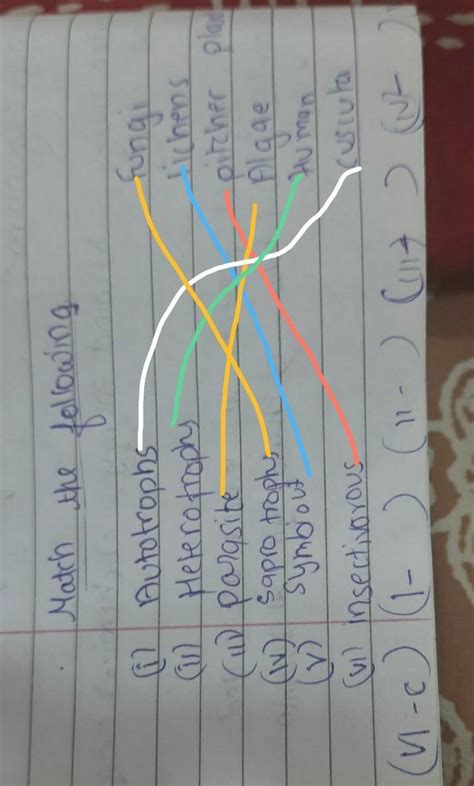 Match the following
(i) Autotrophs Fungi
(ii) Heterotrophs lichens
(iii) parasite pitcher
(iv) sapro trophs Algae
(v) Symbiout Human
(vi) insectivorous cuscuta
(VI - c) (I - ) (II - ) (III - ) (IV -